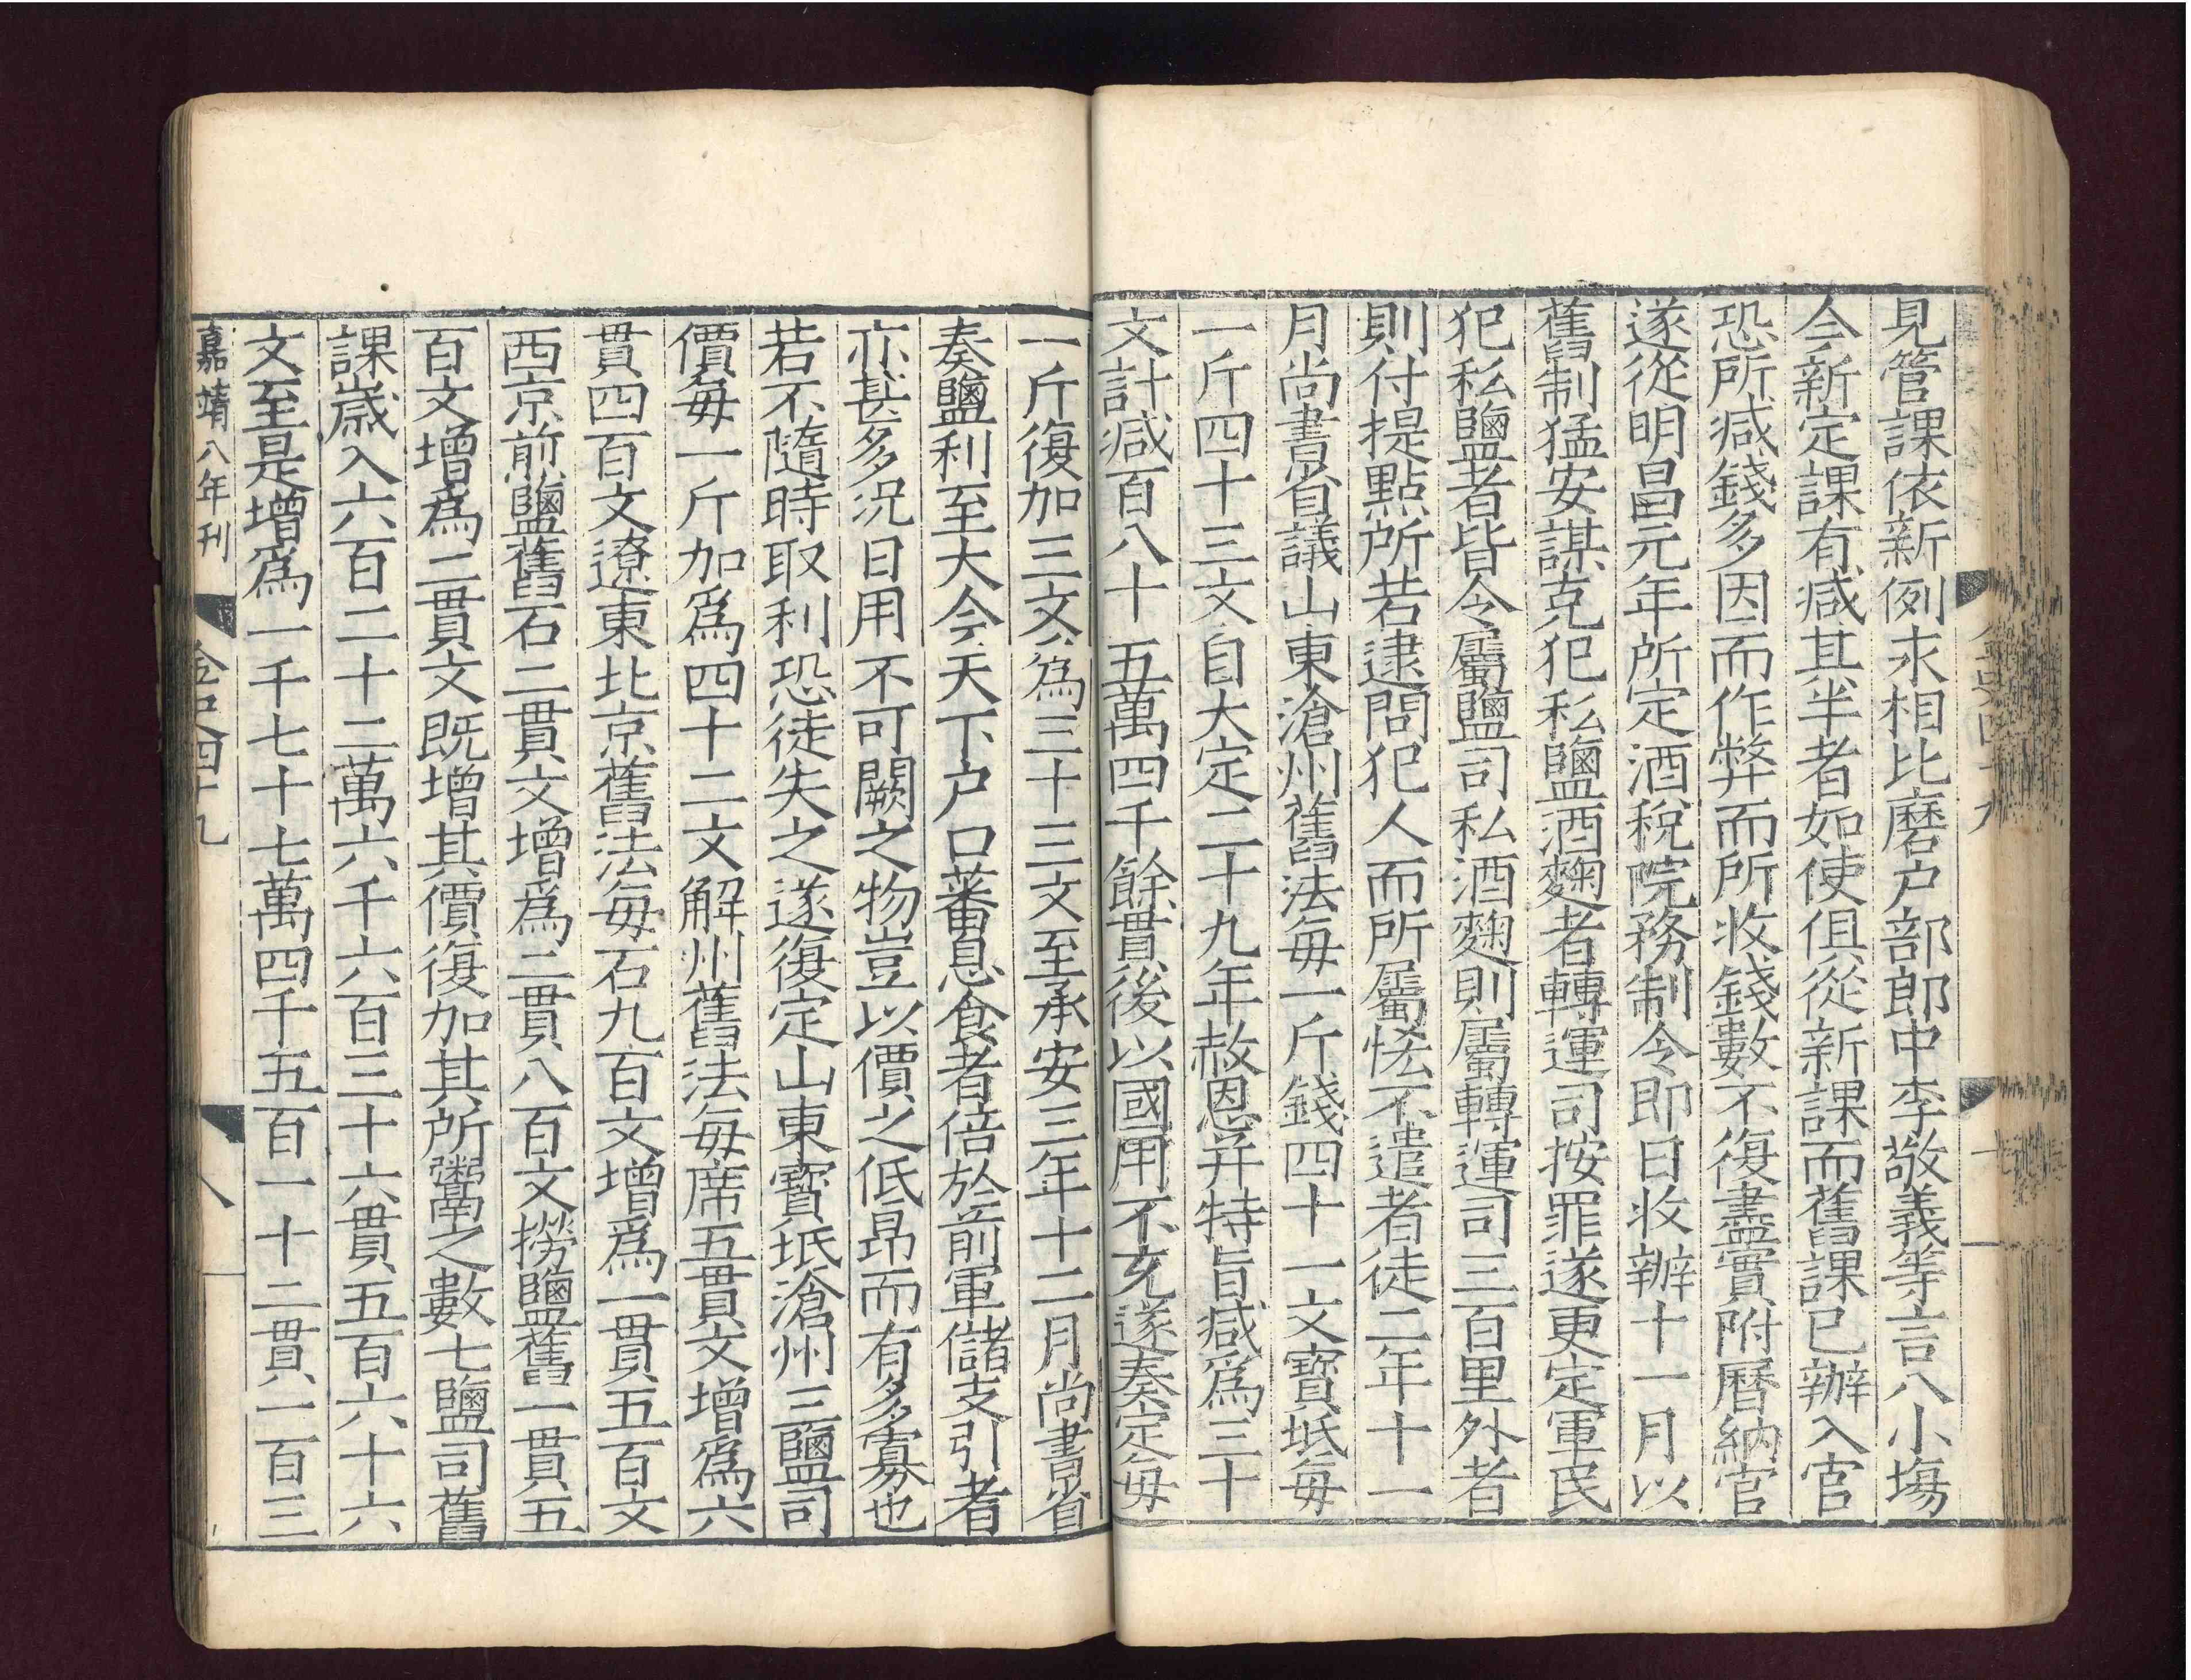 見管課依新例求相比磨户部郎中李敬義等言八小塲
今新定課有减其半者如使俱從新課而舊課已辦入官
恐所减錢多因而作弊而所收錢數不復盡實附曆納官
遂從明昌元年所定酒稅院務制令即日收辦十一月以
舊制猛安謀克犯私鹽酒麴者轉運司按罪遂更定軍民
犯私鹽者皆令屬鹽司私酒麴則屬轉運司三百里外者
則付提點所若逮問犯人而所屬恡不遣者徒二年十一
月尚書省議山東滄州舊法每一斤錢四十一文寶坻每
一斤四十三文自大定二十九年赦恩并特旨减爲三十
文計减百八十五萬四千餘貫後以國用不充遂奏定每
一斤復加三文爲三十三文至承安三年十二月尚書省
奏鹽利至大今天下户口蕃息食者倍於前軍儲支引者
亦甚多况日用不可闕之物豈以價之低昂而有多寡也
若不隨時取利恐徒失之遂復定山東寶坻滄州三鹽司
價每一斤加爲四十二文解州舊法每席五貫文增爲六
貫四百文遼東北京舊法每石九百文增爲一貫五百文
西京前鹽舊石二貫文增爲二貫八百文撈鹽舊一貫五
百文增爲二貫文既增其價復加其所鬻之數七鹽司舊
課歲入六百二十二萬六千六百三十六貫五百六十六
文至是增爲一千七十七萬四千五百一十二貫一百三
嘉靖八年刊 金史四十九 八